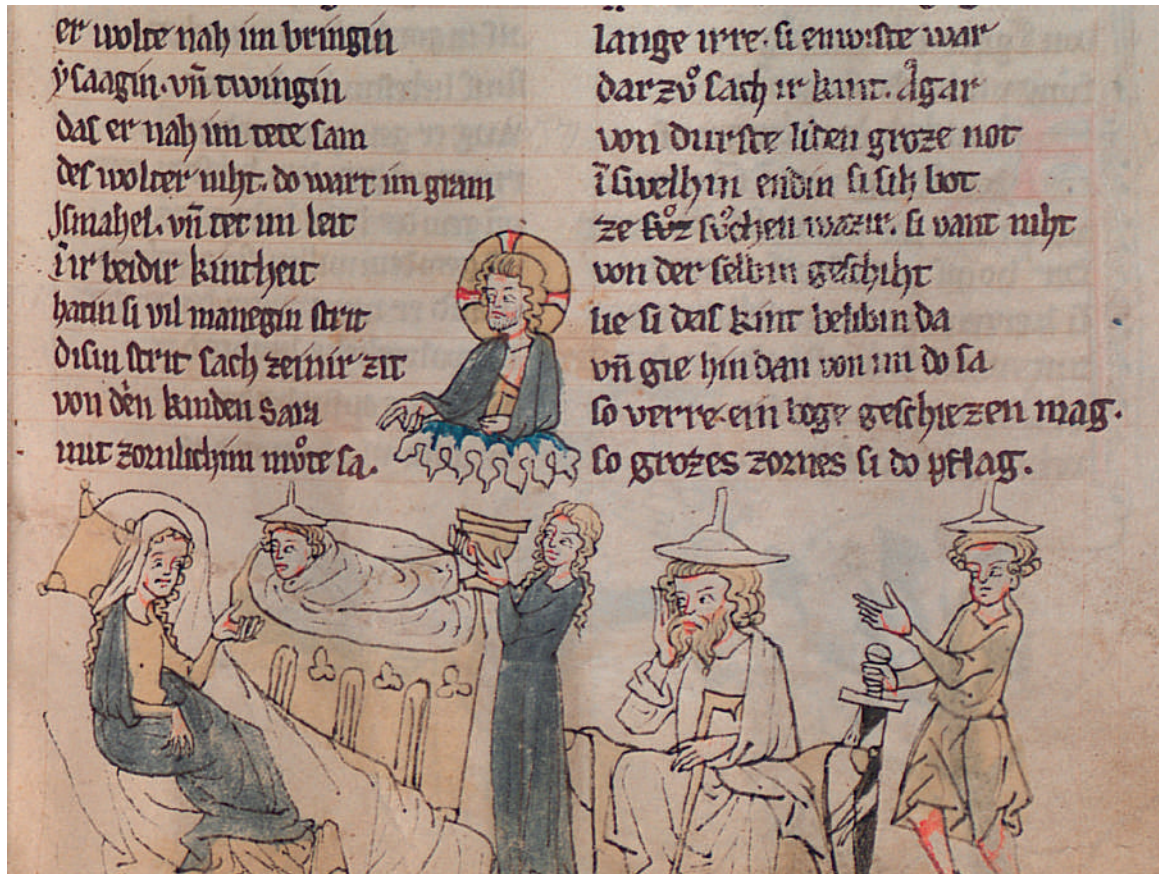 er wolte nah im bringin
ẏsaagin. vn̄ twingin
das er nah im tete sam
des wolter niht. do wart im gram
Jsmahel. vn̄ tet im leit
ī ir beidir kintheit
hatin si vil manegin strit
disin strit sach zeinir zit
von den kinden Sara
mit zornlichim můte sa.
lange irre. si enwiste war
dar zů sach ir kint. Agar
von durste liden groze not
ī swelhin endin si sih bot
ze sůchen wazir. si vant niht
von der selbin geschiht
lie si das kint belibin da
vn̄ gie hin dan von im do sa
so verre. ein boge geschiezen mag.
so grozes zornes si do pflag.